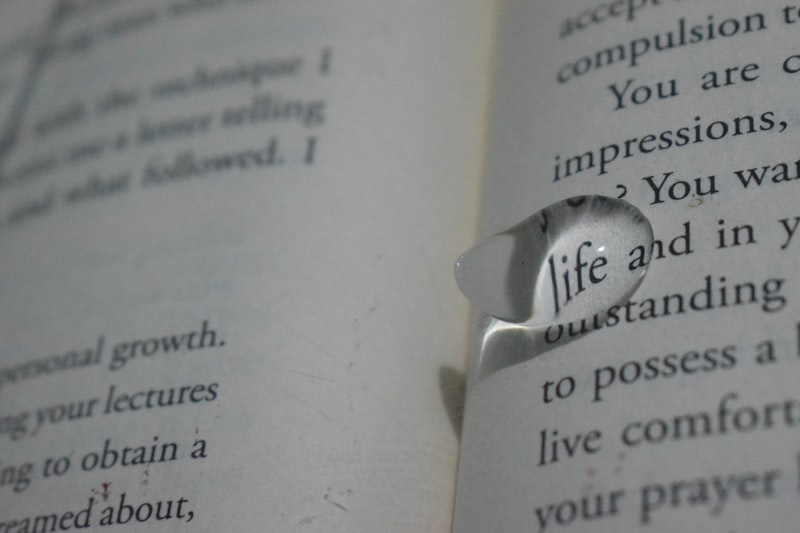 with the technique I
me a letter telling
and what followed. I
personal growth.
your lectures
to obtain a
about,
compulsion
You are
impressions,
? You
life and in
outstanding
to possess a
live
your prayer